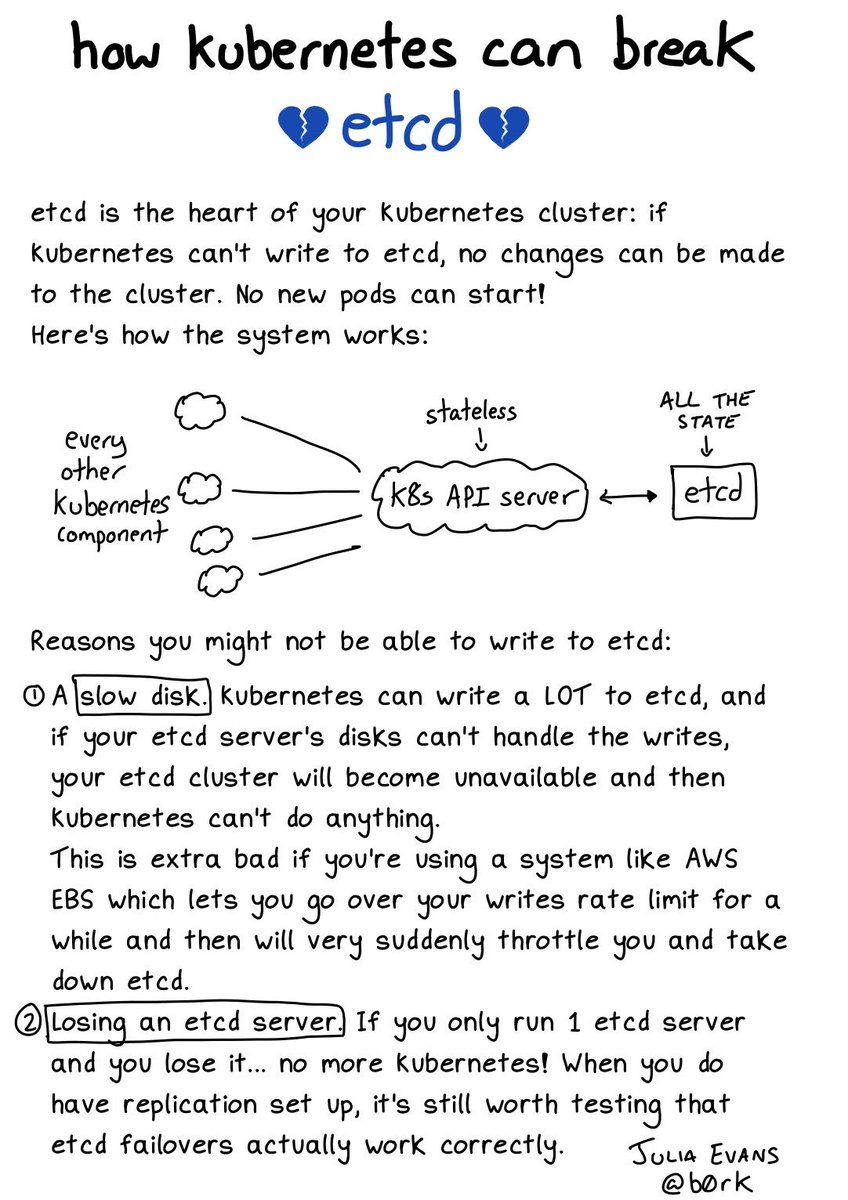 how kubernetes can break
etcd
etcd is the heart of your Kubernetes cluster: if
Kubernetes can't write to etcd, no changes can be made
to the cluster. No new pods can start!
Here's how the system works:
every
other
Kubernetes
component
stateless
K8s API server
ALL THE
STATE
etcd
Reasons you might not be able to write to etcd:
① A slow disk. Kubernetes can write a LOT to etcd, and
if your etcd server's disks can't handle the writes,
your etcd cluster will become unavailable and then
Kubernetes can't do anything.
This is extra bad if you're using a system like AWS
EBS which lets you go over your writes rate limit for a
while and then will very suddenly throttle you and take
down etcd.
② Losing an etcd server. If you only run 1 etcd server
and you lose it... no more Kubernetes! When you do
have replication set up, it's still worth testing that
etcd failovers actually work correctly.
JULIA EVANS
@b0rk